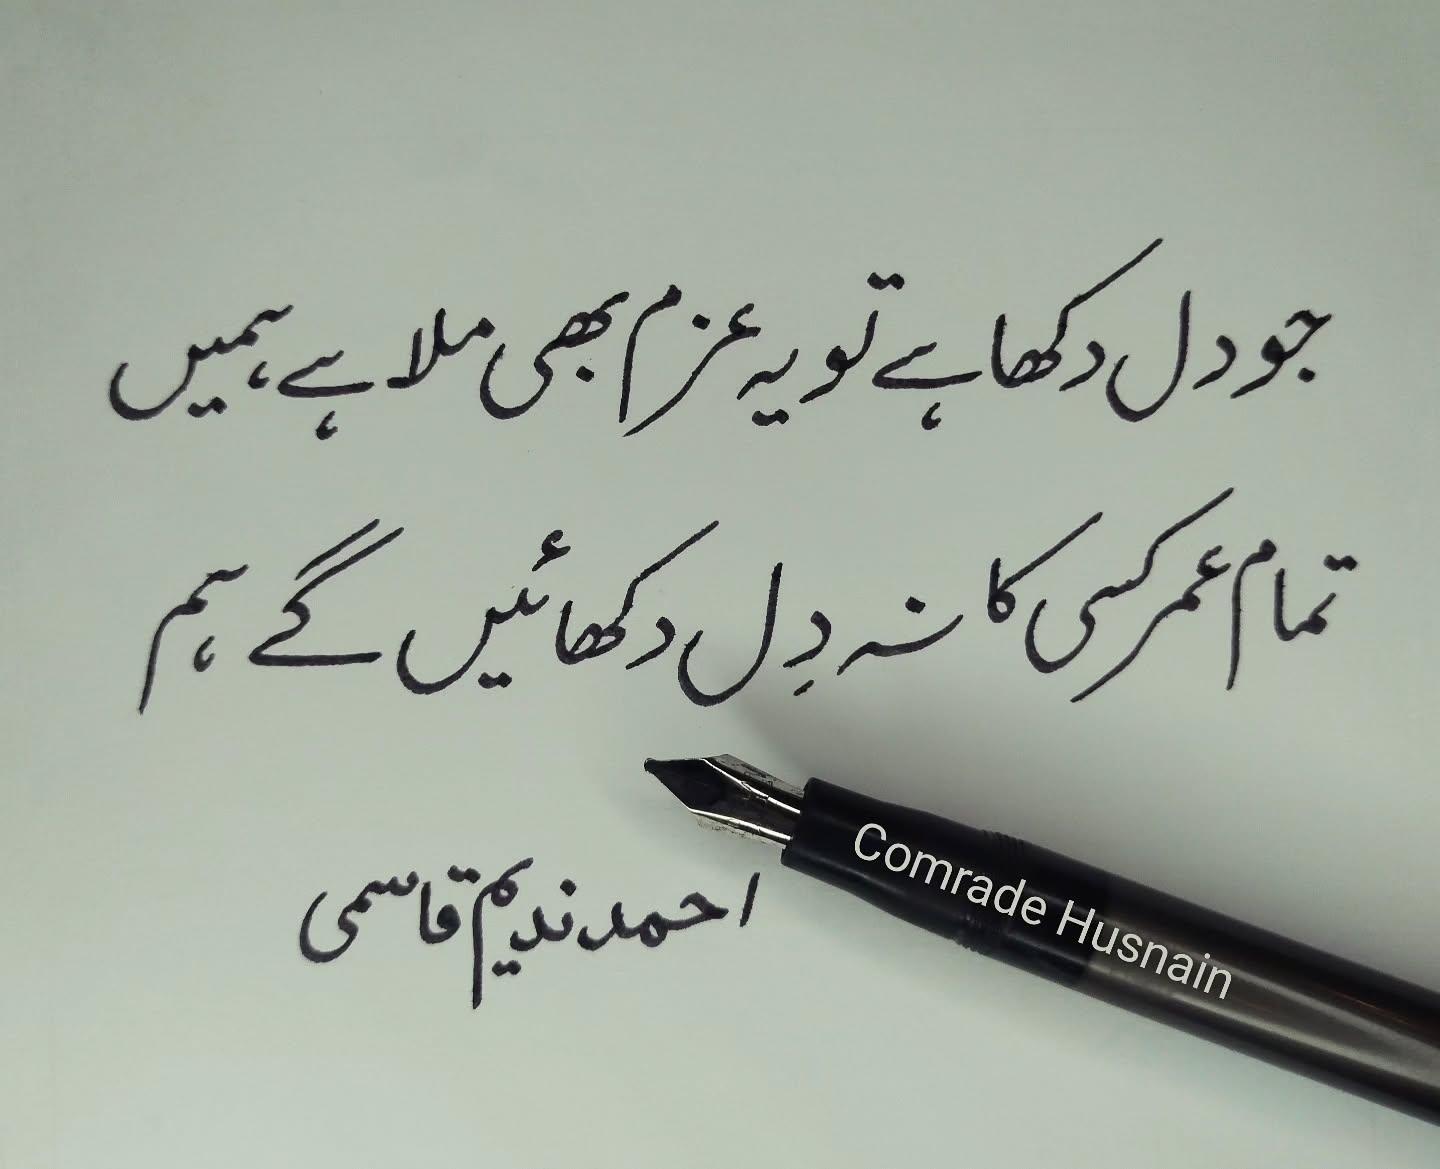 جو دل دکھا ہے تو یہ عزم بھی ملا ہے ہمیں
تمام عمر کسی کا نہ دِل دکھائیں گے ہم
احمد ندیم قاسمی
Comrade Husnain